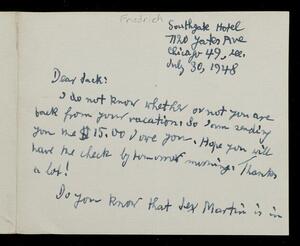 Friedrich
Southgate Hotel
7720 Yates Ave
Chicago 49, Ill.
July 30, 1948
Dear Jack:
I do not know whether or not you are
back from your vacation: So I am sending
you the $15.00 I owe you. Hope you will
have the check by tomorrow morning. Thanks
a lot!
Do you know that Lex Martin is in